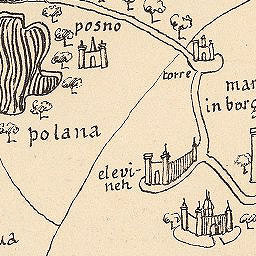 posno
torre
mar
in borg
polana
elevi-
neh
ua